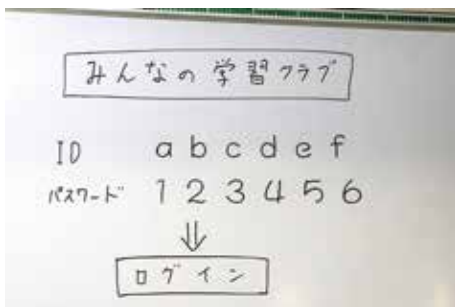 みんなの学習クラブ
ID abcdef
パスワード 123456
⇓
ログイン